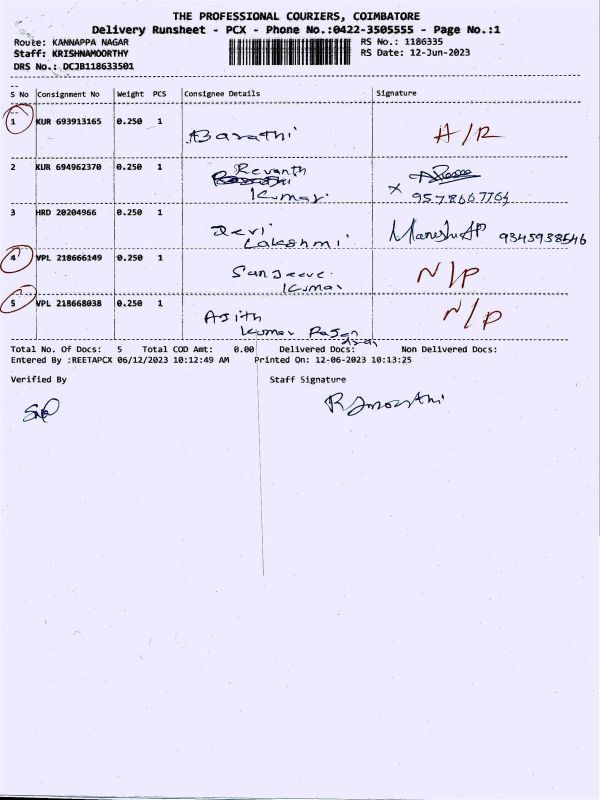 THE PROFESSIONAL COURIERS, COIMBATORE
Delivery Runsheet - PCX - Phone No.:0422-3505555 - Page No.:1
Route: KANNAPPA NAGAR RS No.: 1186335
Staff: KRISHNAMOORTHY RS Date: 12-Jun-2023
DRS No.: DCJB118633501
S No Consignment No Weight PCS Consignee Details Signature
1 KUR 693913165 0.250 1 Barathi A/R
2 KUR 694962370 0.250 1 Revanth
Kumar. x 9578667764
3 HRD 20204966 0.250 1 Devi
Lakshmi 9345938546
4 VPL 218666149 0.250 1 Sanjeeve
Kumar N/P
5 VPL 218668038 0.250 1 Ajith
Kumar N/P
Total No. Of Docs: 5 Total COD Amt: 0.00 Delivered Docs: Non Delivered Docs:
Entered By :REETAPCX 06/12/2023 10:12:49 AM Printed On: 12-06-2023 10:13:25
Verified By Staff Signature